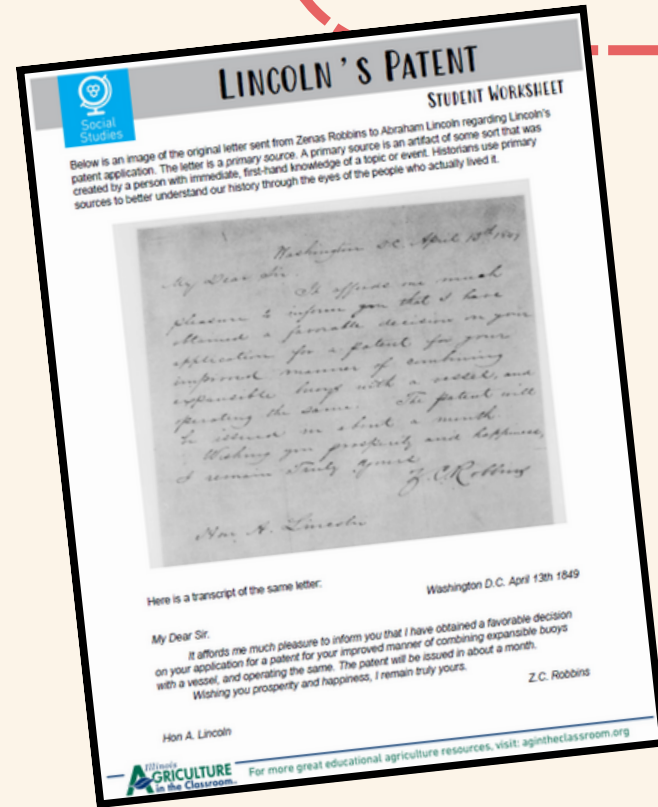 LINCOLN'S PATENT
STUDENT WORKSHEET
Social
Studies
Below is an image of the original letter sent from Zenas Robbins to Abraham Lincoln regarding Lincoln's
patent application. The letter is a primary source. A primary source is an artifact of some sort that was
created by a person with immediate, first-hand knowledge of a topic or event. Historians use primary
sources to better understand our history through the eyes of the people who actually lived it.
Washington DC. April 13th 1849
My Dear Sir.
It affords me much
pleasure to inform you that I have
obtained a favorable decision on your
application for a patent for your
improved manner of combining
expansible buoys with a vessel, and
operating the same. The patent will
be issued in about a month
Wishing you prosperity and happiness,
I remain Truly yours
Z. C. Robbins
Hon. A. Lincoln
Here is a transcript of the same letter:
Washington D.C. April 13th 1849
My Dear Sir.
It affords me much pleasure to inform you that I have obtained a favorable decision
on your application for a patent for your improved manner of combining expansible buoys
with a vessel, and operating the same. The patent will be issued in about a month.
Wishing you prosperity and happiness, I remain truly yours.
Z.C. Robbins
Hon A. Lincoln
Illinois
AGRICULTURE
in the Classroom
For more great educational agriculture resources, visit: agintheclassroom.org